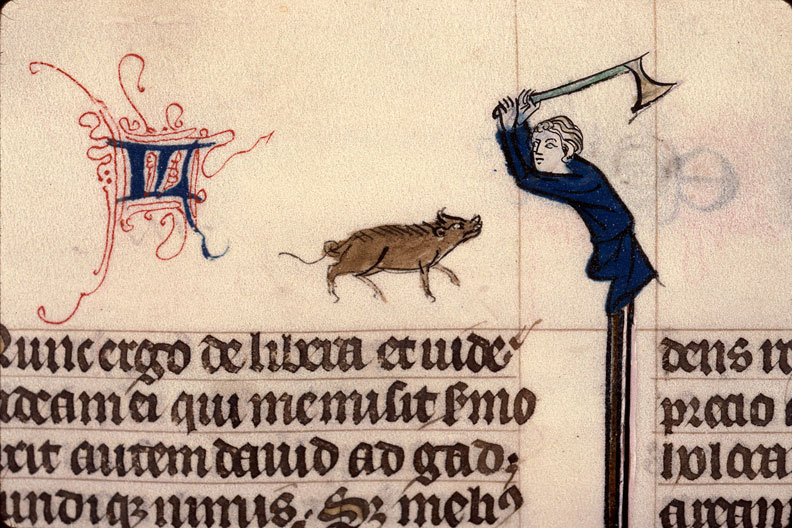 Nunc ergo delibera et uide
deam ei qui me misit smo
xit autem dauid ad gad
undiqz nimis. Sz meliꝰ
dens
precio
holoca
aream